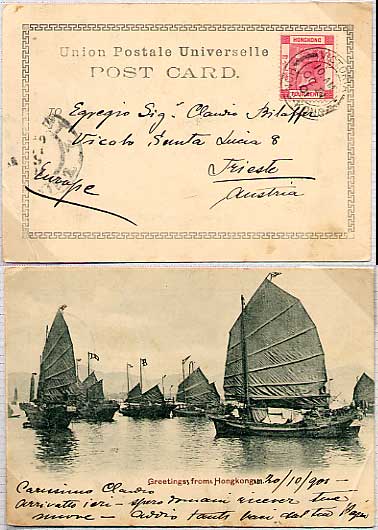 Union Postale Universelle
POST CARD.
HONGKONG
VICTORIA
TO Egregio Sigr. Claudio
Vicolo Santa Lucia 8
Trieste
Europe
Austria
Greetings from Hongkong 20/10/901 -
Carissimo Claudio -
arrivato ieri - spero domani ricever tue
nuove - Addio tanti baci dal tuo